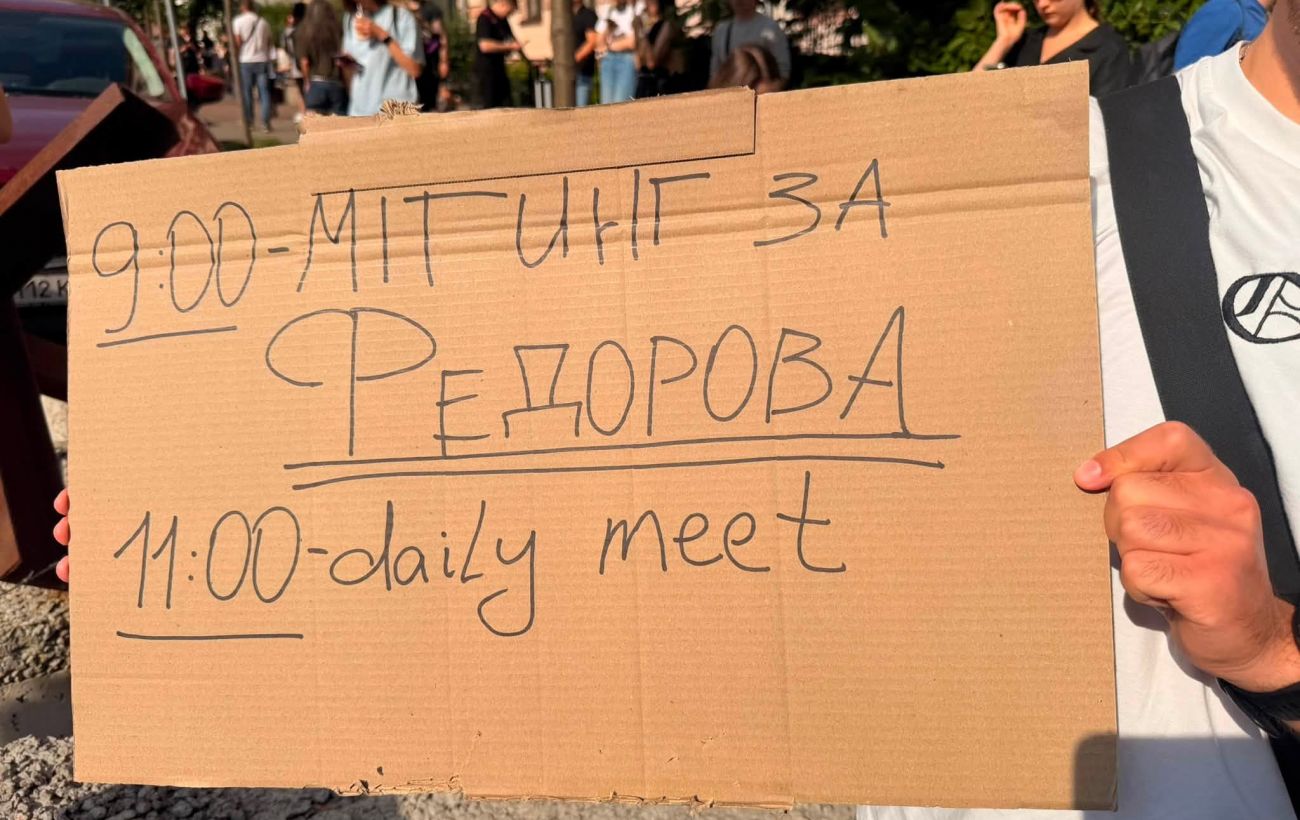 9:00-МІТИНГ ЗА
ФЕДОРОВА
11:00-daily meet